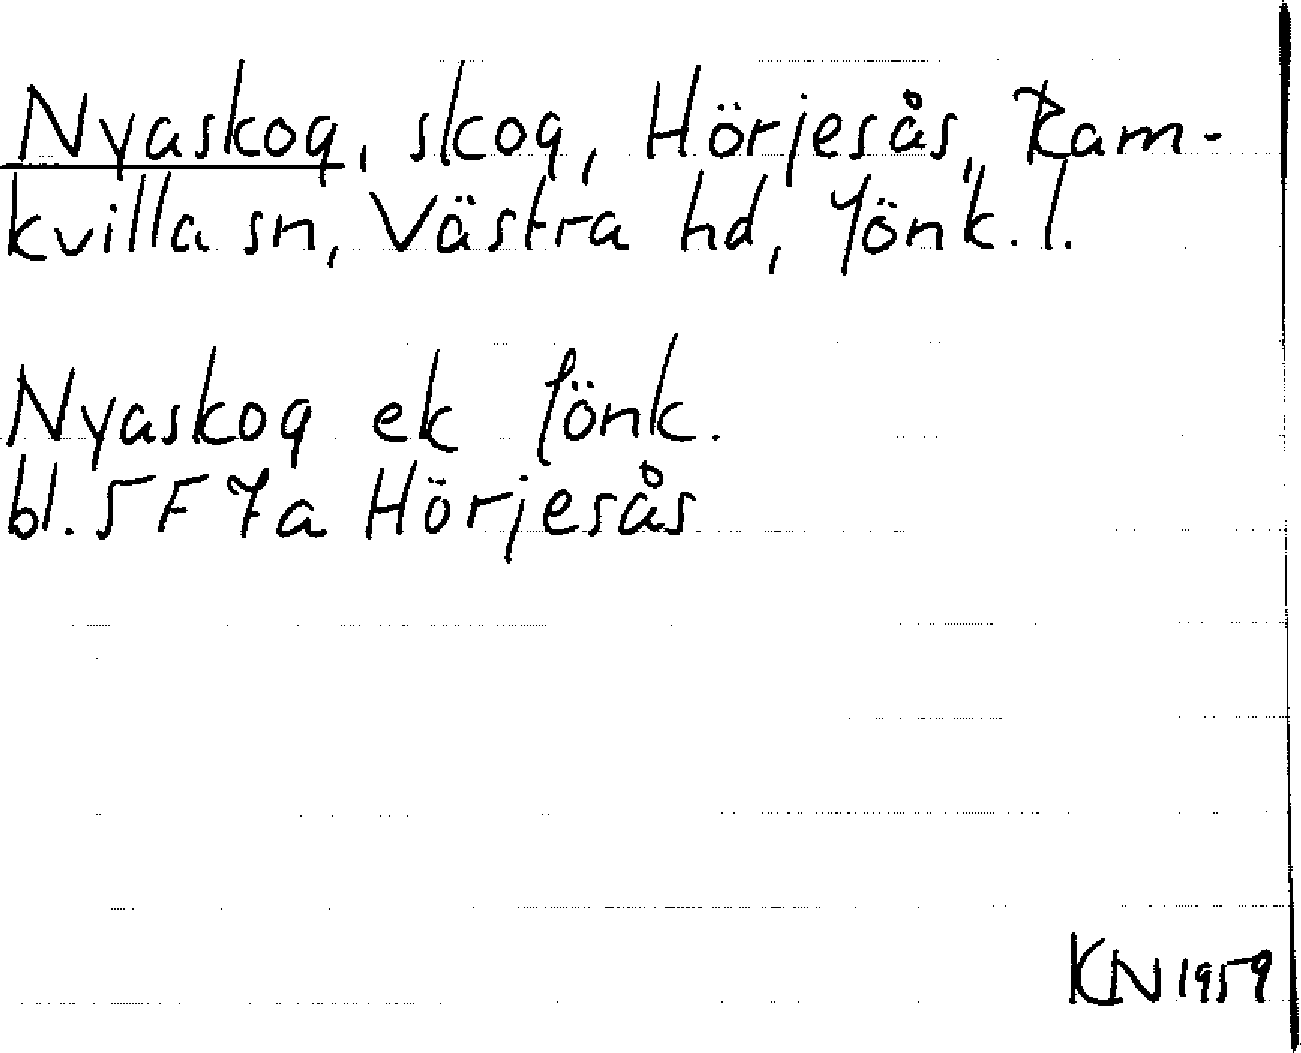 Nyaskog, skog, Hörjesås, Ram-
kvilla sn, Västra hd, Jönk. l.
Nyaskog ek Jönk.
bl. 5F 7a Hörjesås
KN 1959